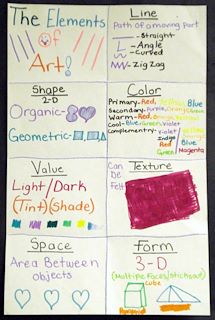 The Elements
of
Art!
Line
Path of a moving part
-Straight
-Angle
-Curved
-Zig Zag
Shape
2-D
Organic-
Geometric-
Color
Primary-Red, Yellow, Blue
Secondary-Purple, Orange, Green
Warm-Red, Orange, Yellow
Cool-Blue, Green, Violet
Complementry-
Violet
Yellow
Indigo
Orange
Blue
Red
Green
Magenta
Value
Light/Dark
(Tint)(Shade)
Texture
Can
Be
Felt
Space
Area Between
objects
Form
3-D
(Multiple Faces/sticks out)
cube